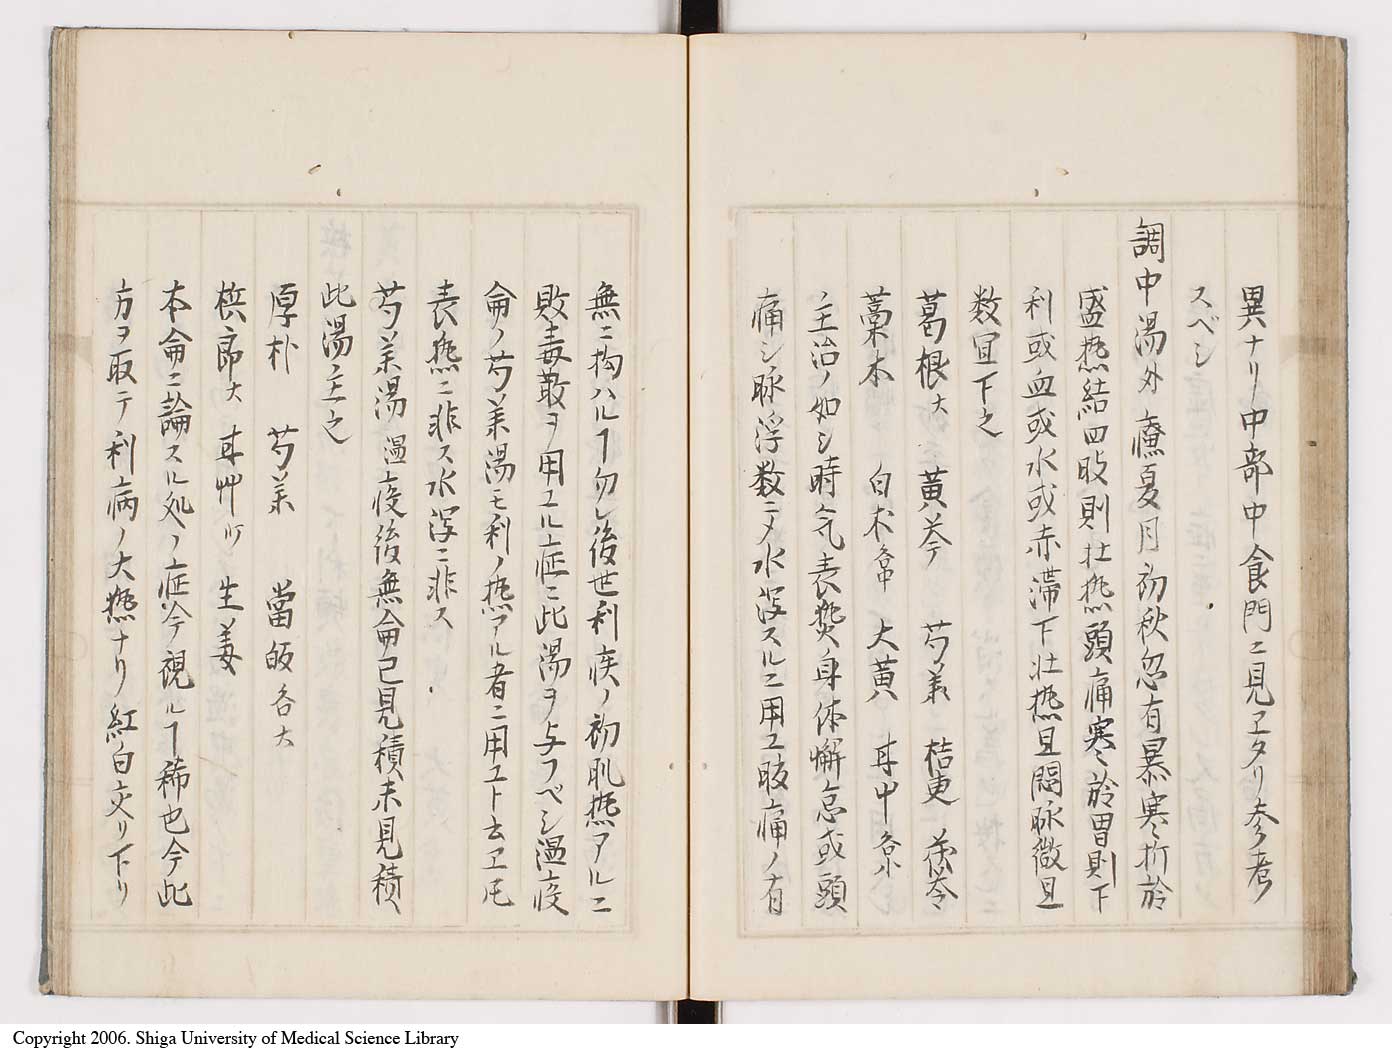 異ナリ中部中食門ニ見ヱタリ参考
スベシ
調中湯 外 療夏月初秋忽有暴寒々折於
盛熱結四肢則壮熱頭痛寒々於胃則下
利或血或水或赤滞下壮熱且悶脉微且
数宜下之
葛根大 黄芩 芍薬 桔更 茯苓
藁本 白朮各中 大黄 耳中各小
主治ノ如シ時気表熱身体懈怠或頭
痛シ脉浮数ニメ水瀉スルニ用ユ肢痛ノ有
無ニ拘ハルヿ勿レ後世利疾ノ初肌熱ヲルニ
敗毒散ヲ用ユル症ニ此湯ヲ与フベシ温疫
侖ノ芍薬湯モ利ノ熱アル者ニ用ユト云ヱ𪜈
表熱ニ非ス水瀉ニ非ス
芍薬湯 温疫後無侖已見積未見積
此湯主之
厚朴 芍薬 當皈各大
梹郎大 耳艸 生姜
本侖ニ論スル処ノ症今視ルヿ稀也今此
方ヲ取テ利病ノ大熱ナリ紅白交リ下リ
Copyright 2006. Shiga University of Medical Science Library